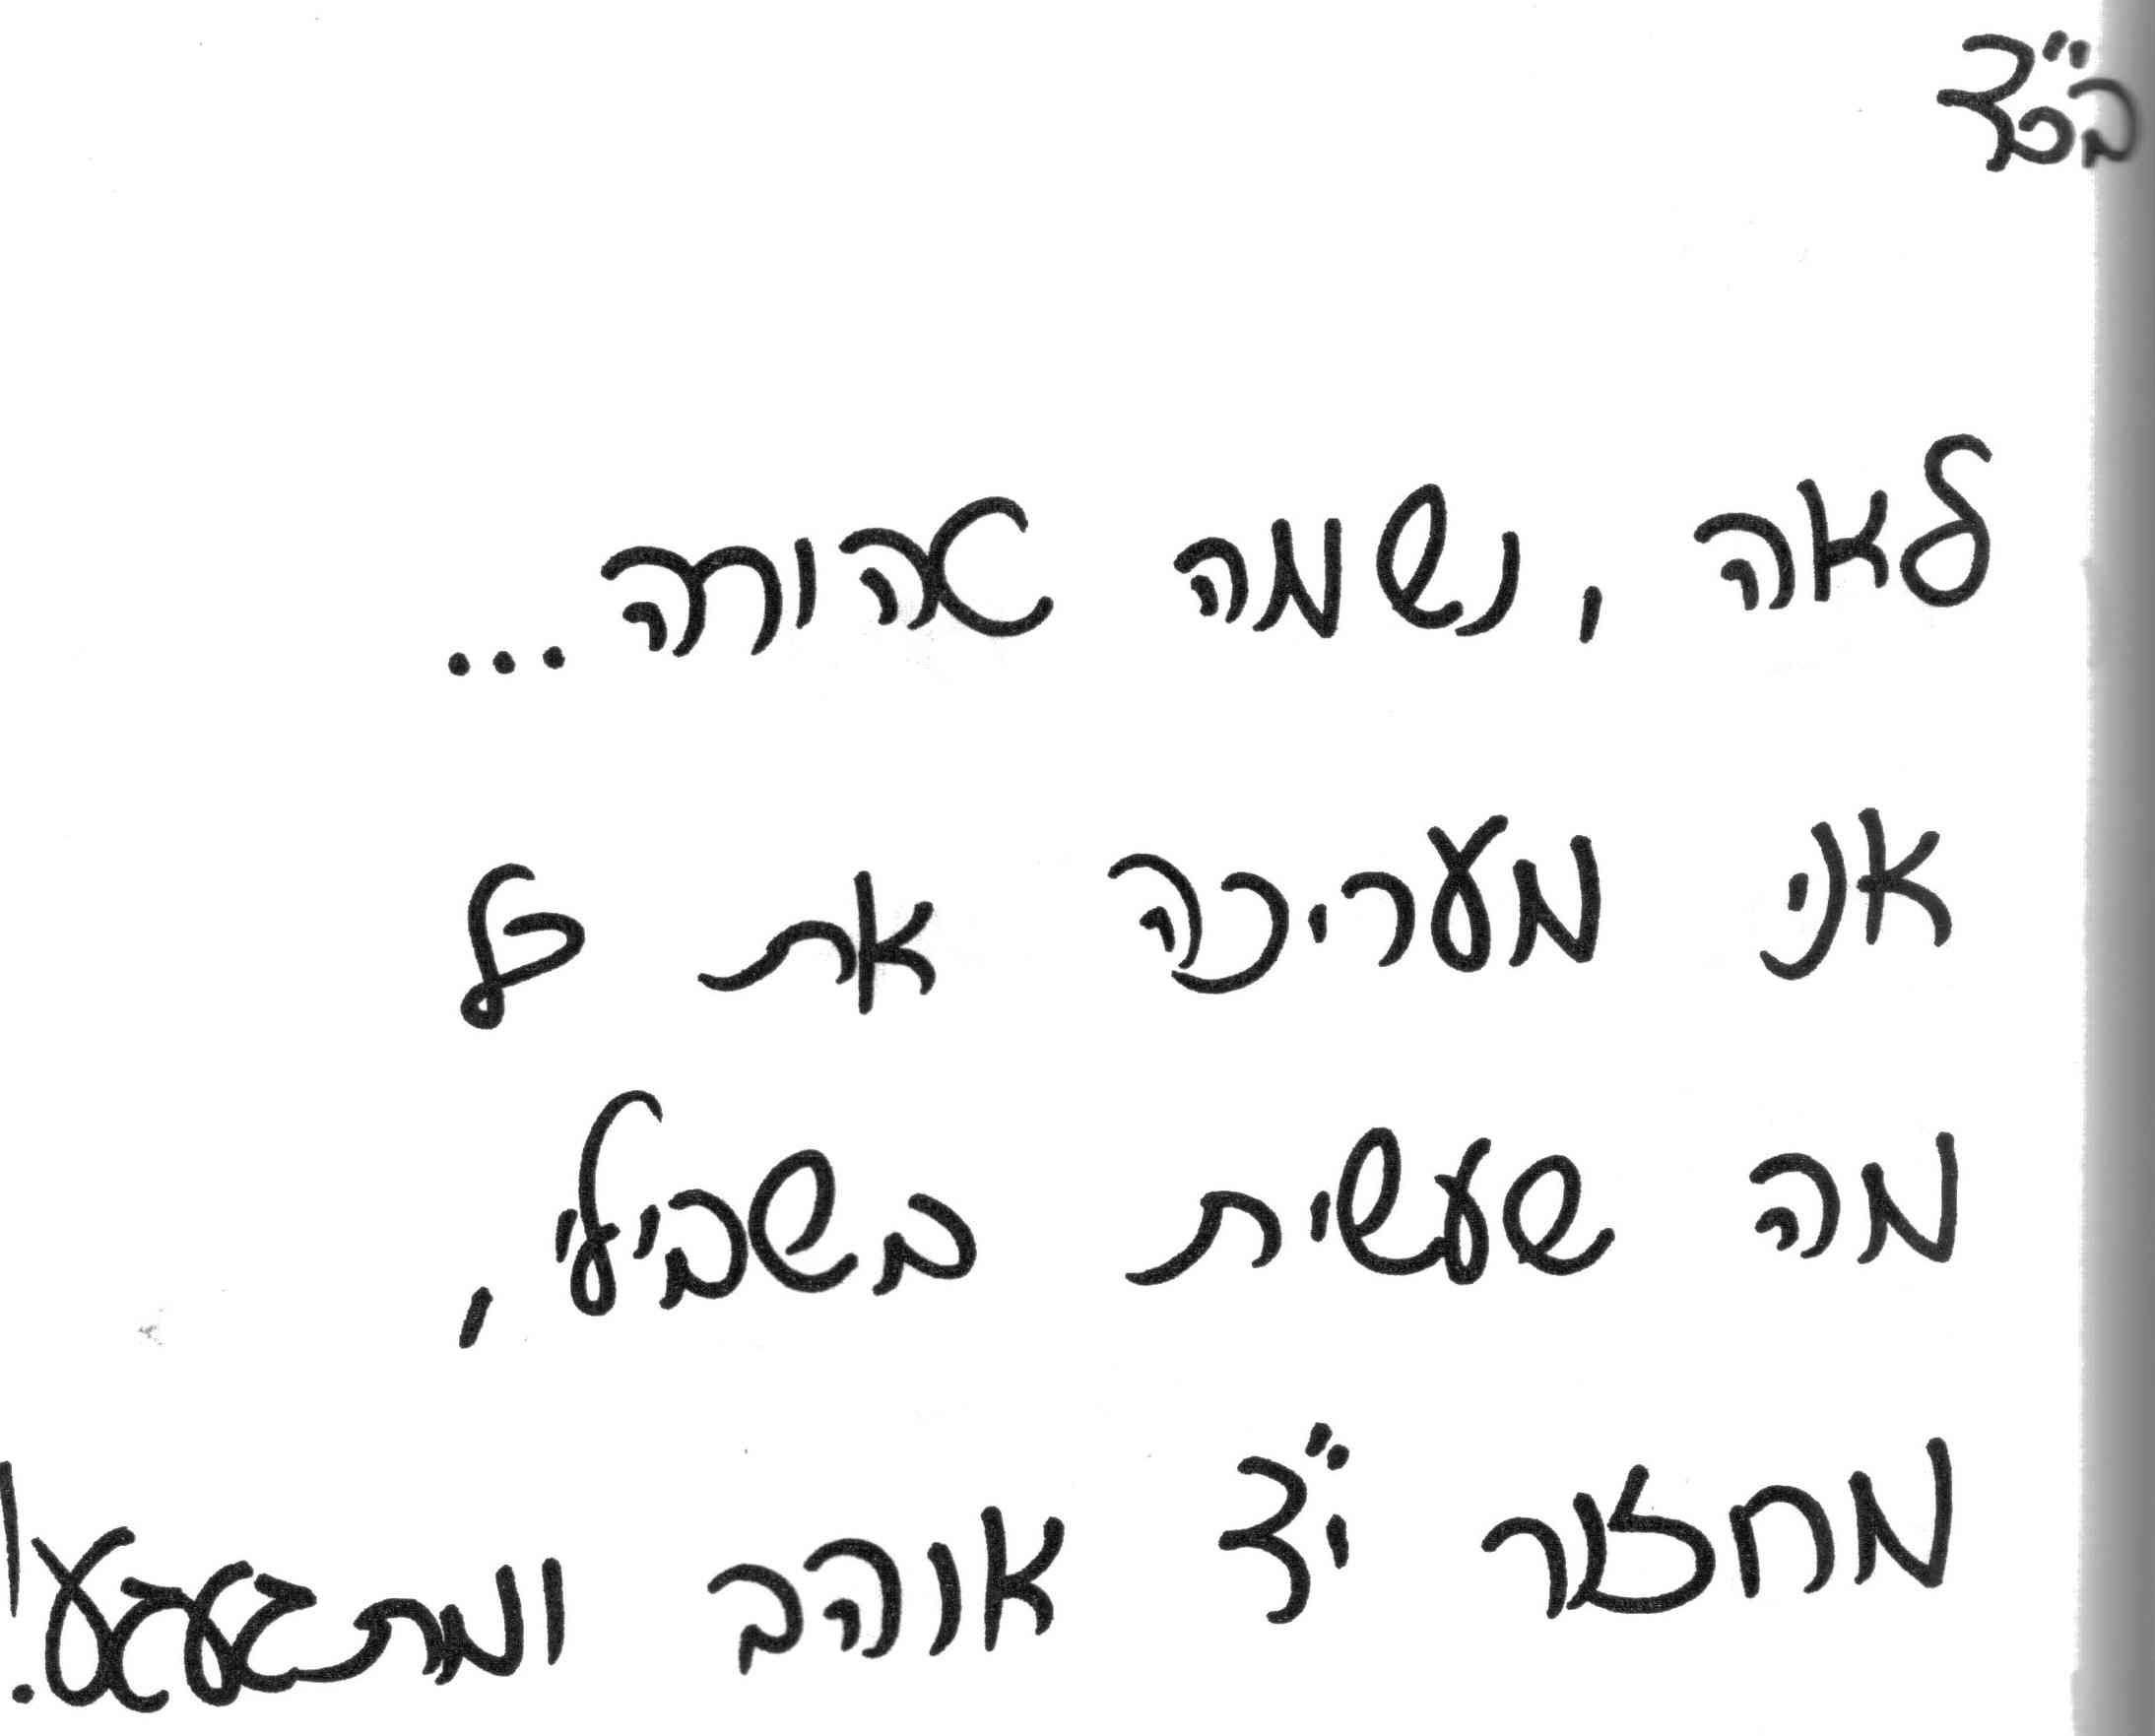 בס"ד
לאה, נשמה טהורה...
אני מעריכה את כל
מה שעשית בשבילי,
מחזור י"ד אוהב ומתגעגע!